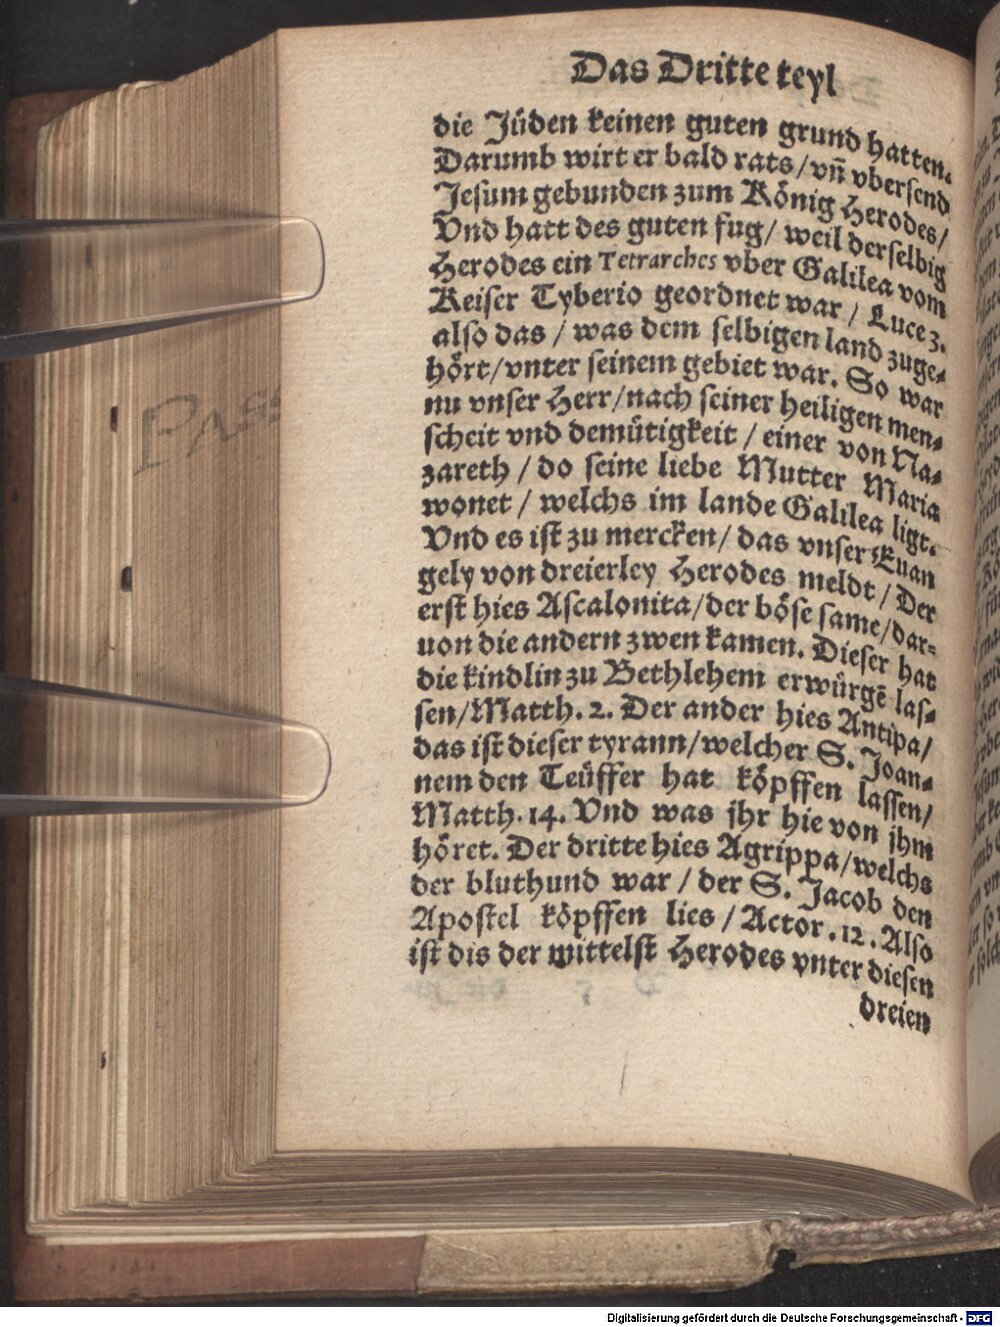 Das Dritte teyl
die Jüden keinen guten grund hatten.
Darumb wirt er bald rats/vñ vbersend
Jesum gebunden zum König Herodes/
Vnd hatt des guten fug/ weil derselbig
Herodes ein Tetrarches vber Galilea vom
Keiser Tyberio geordnet war / Luce 3.
also das / was dem selbigen land zuge-
hört/vnter seinem gebiet war. So war
nu vnser Herr/nach seiner heiligen men-
scheit vnd demütigkeit / einer von Na-
zareth / do seine liebe Mutter Maria
wonet / welchs im lande Galilea ligt.
Vnd es ist zu mercken/ das vnser Euan
gely von dreierley Herodes meldt / Der
erst hies Ascalonita/der böse same/dar-
uon die andern zwen kamen. Dieser hat
die kindlin zu Bethlehem erwürgē las-
sen/Matth. 2. Der ander hies Antipa/
das ist dieser tyrann/welcher S. Joan-
nem den Teüffer hat köpffen lassen/
Matth. 14. Vnd was jhr hie von jhm
höret. Der dritte hies Agrippa/welchs
der bluthund war / der S. Jacob den
Apostel köpffen lies / Actor. 12. Also
ist dis der mittelst Herodes vnter diesen
dreien
PASS
Digitalisierung gefördert durch die Deutsche Forschungsgemeinschaft - DFG